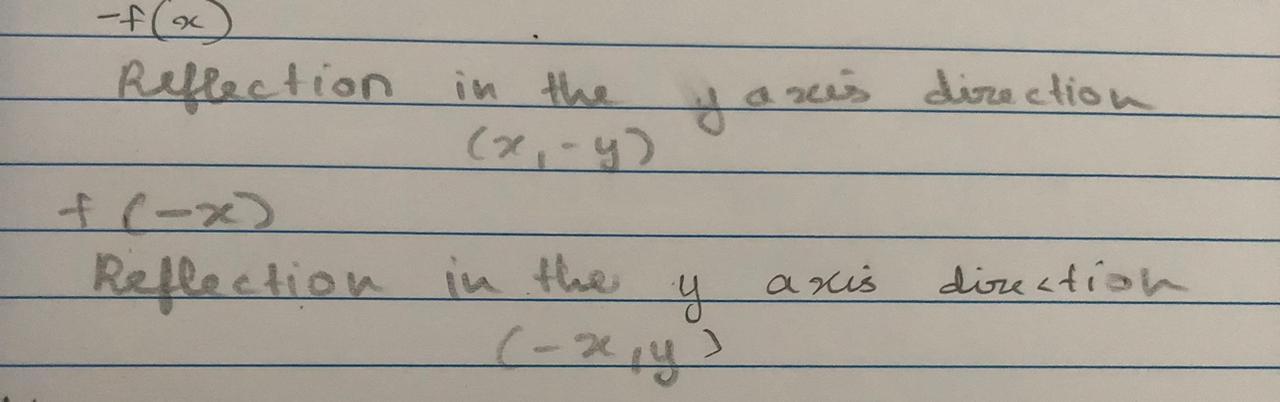 -f(x)
Reflection in the y axis direction
(x, -y)
f(-x)
Reflection in the y axis direction
(-x, y)